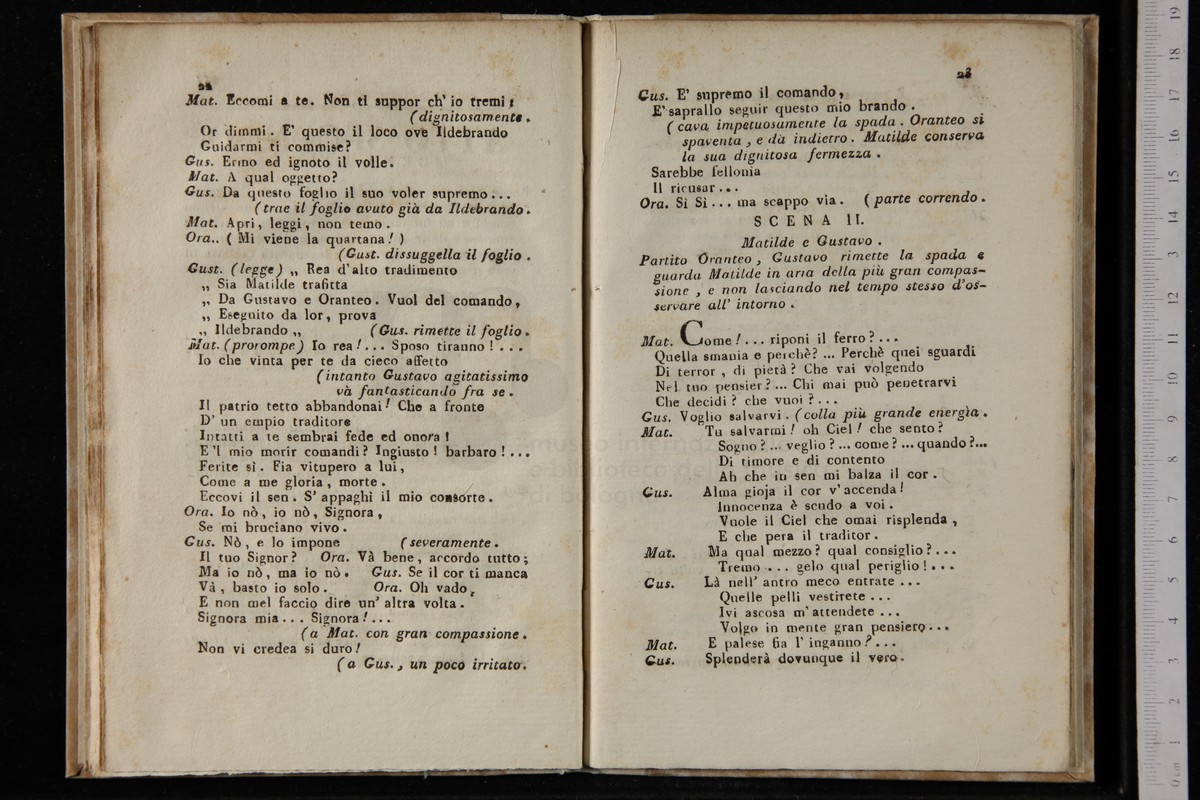 22
Mat. Eccomi a te. Non ti suppor ch' io tremi;
(dignitosamente.
Or dimmi. E' questo il loco ove Ildebrando
Guidarmi ti commise?
Gus. Ermo ed ignoto il volle.
Mat. A qual oggetto?
Gus. Da questo foglio il suo voler supremo...
(trae il foglio avuto già da Ildebrando.
Mat. Apri, leggi, non temo.
Ora.. ( Mi viene la quartana! )
(Gust. dissuggella il foglio.
Gust. (legge) „ Rea d'alto tradimento
„ Sia Matilde trafitta
„ Da Gustavo e Oranteo. Vuol del comando,
„ Eseguito da lor, prova
„ Ildebrando „ (Gus. rimette il foglio.
Mat. (prorompe) Io rea!... Sposo tiranno!...
Io che vinta per te da cieco affetto
(intanto Gustavo agitatissimo
và fantasticando fra se.
Il patrio tetto abbandonai! Che a fronte
D' un empio traditore
Intatti a te sembrai fede ed onora!
E 'l mio morir comandi? Ingiusto! barbaro!...
Ferite sì. Fia vitupero a lui,
Come a me gloria, morte.
Eccovi il sen. S' appaghi il mio consorte.
Ora. Io nò, io nò, Signora,
Se mi bruciano vivo.
Gus. Nò, e lo impone (severamente.
Il tuo Signor? Ora. Và bene, accordo tutto;
Ma io nò, ma io nò. Gus. Se il cor ti manca
Và, basto io solo. Ora. Oh vado,
E non mel faccio dire un' altra volta.
Signora mia... Signora!...
(a Mat. con gran compassione.
Non vi credea si duro!
(a Gus., un poco irritato.
23
Gus. E' supremo il comando,
E' saprallo seguir questo mio brando.
(cava impetuosamente la spada. Oranteo si
spaventa, e dà indietro. Matilde conserva
la sua dignitosa fermezza.
Sarebbe fellonia
Il ricusar...
Ora. Sì Sì... ma scappo via. (parte correndo.
SCENA II.
Matilde e Gustavo.
Partito Oranteo, Gustavo rimette la spada e
guarda Matilde in aria della più gran compas-
sione, e non lasciando nel tempo stesso d'os-
servare all' intorno.
Mat. Come!... riponi il ferro?...
Quella smania e perchè? ... Perchè quei sguardi
Di terror, di pietà? Che vai volgendo
Nel tuo pensier?... Chi mai può penetrarvi
Che decidi? che vuoi?...
Gus. Voglio salvarvi. (colla più grande energìa.
Mat. Tu salvarmi! oh Ciel! che sento?
Sogno?... veglio?... come?... quando?...
Di timore e di contento
Ah che in sen mi balza il cor.
Gus. Alma gioja il cor v'accenda!
Innocenza è scudo a voi.
Vuole il Ciel che omai risplenda,
E che pera il traditor.
Mat. Ma qual mezzo? qual consiglio?...
Tremo... gelo qual periglio!...
Gus. Là nell' antro meco entrate...
Quelle pelli vestirete...
Ivi ascosa m'attendete...
Volgo in mente gran pensiero...
Mat. E palese fia l' inganno?...
Gus. Splenderà dovunque il vero.